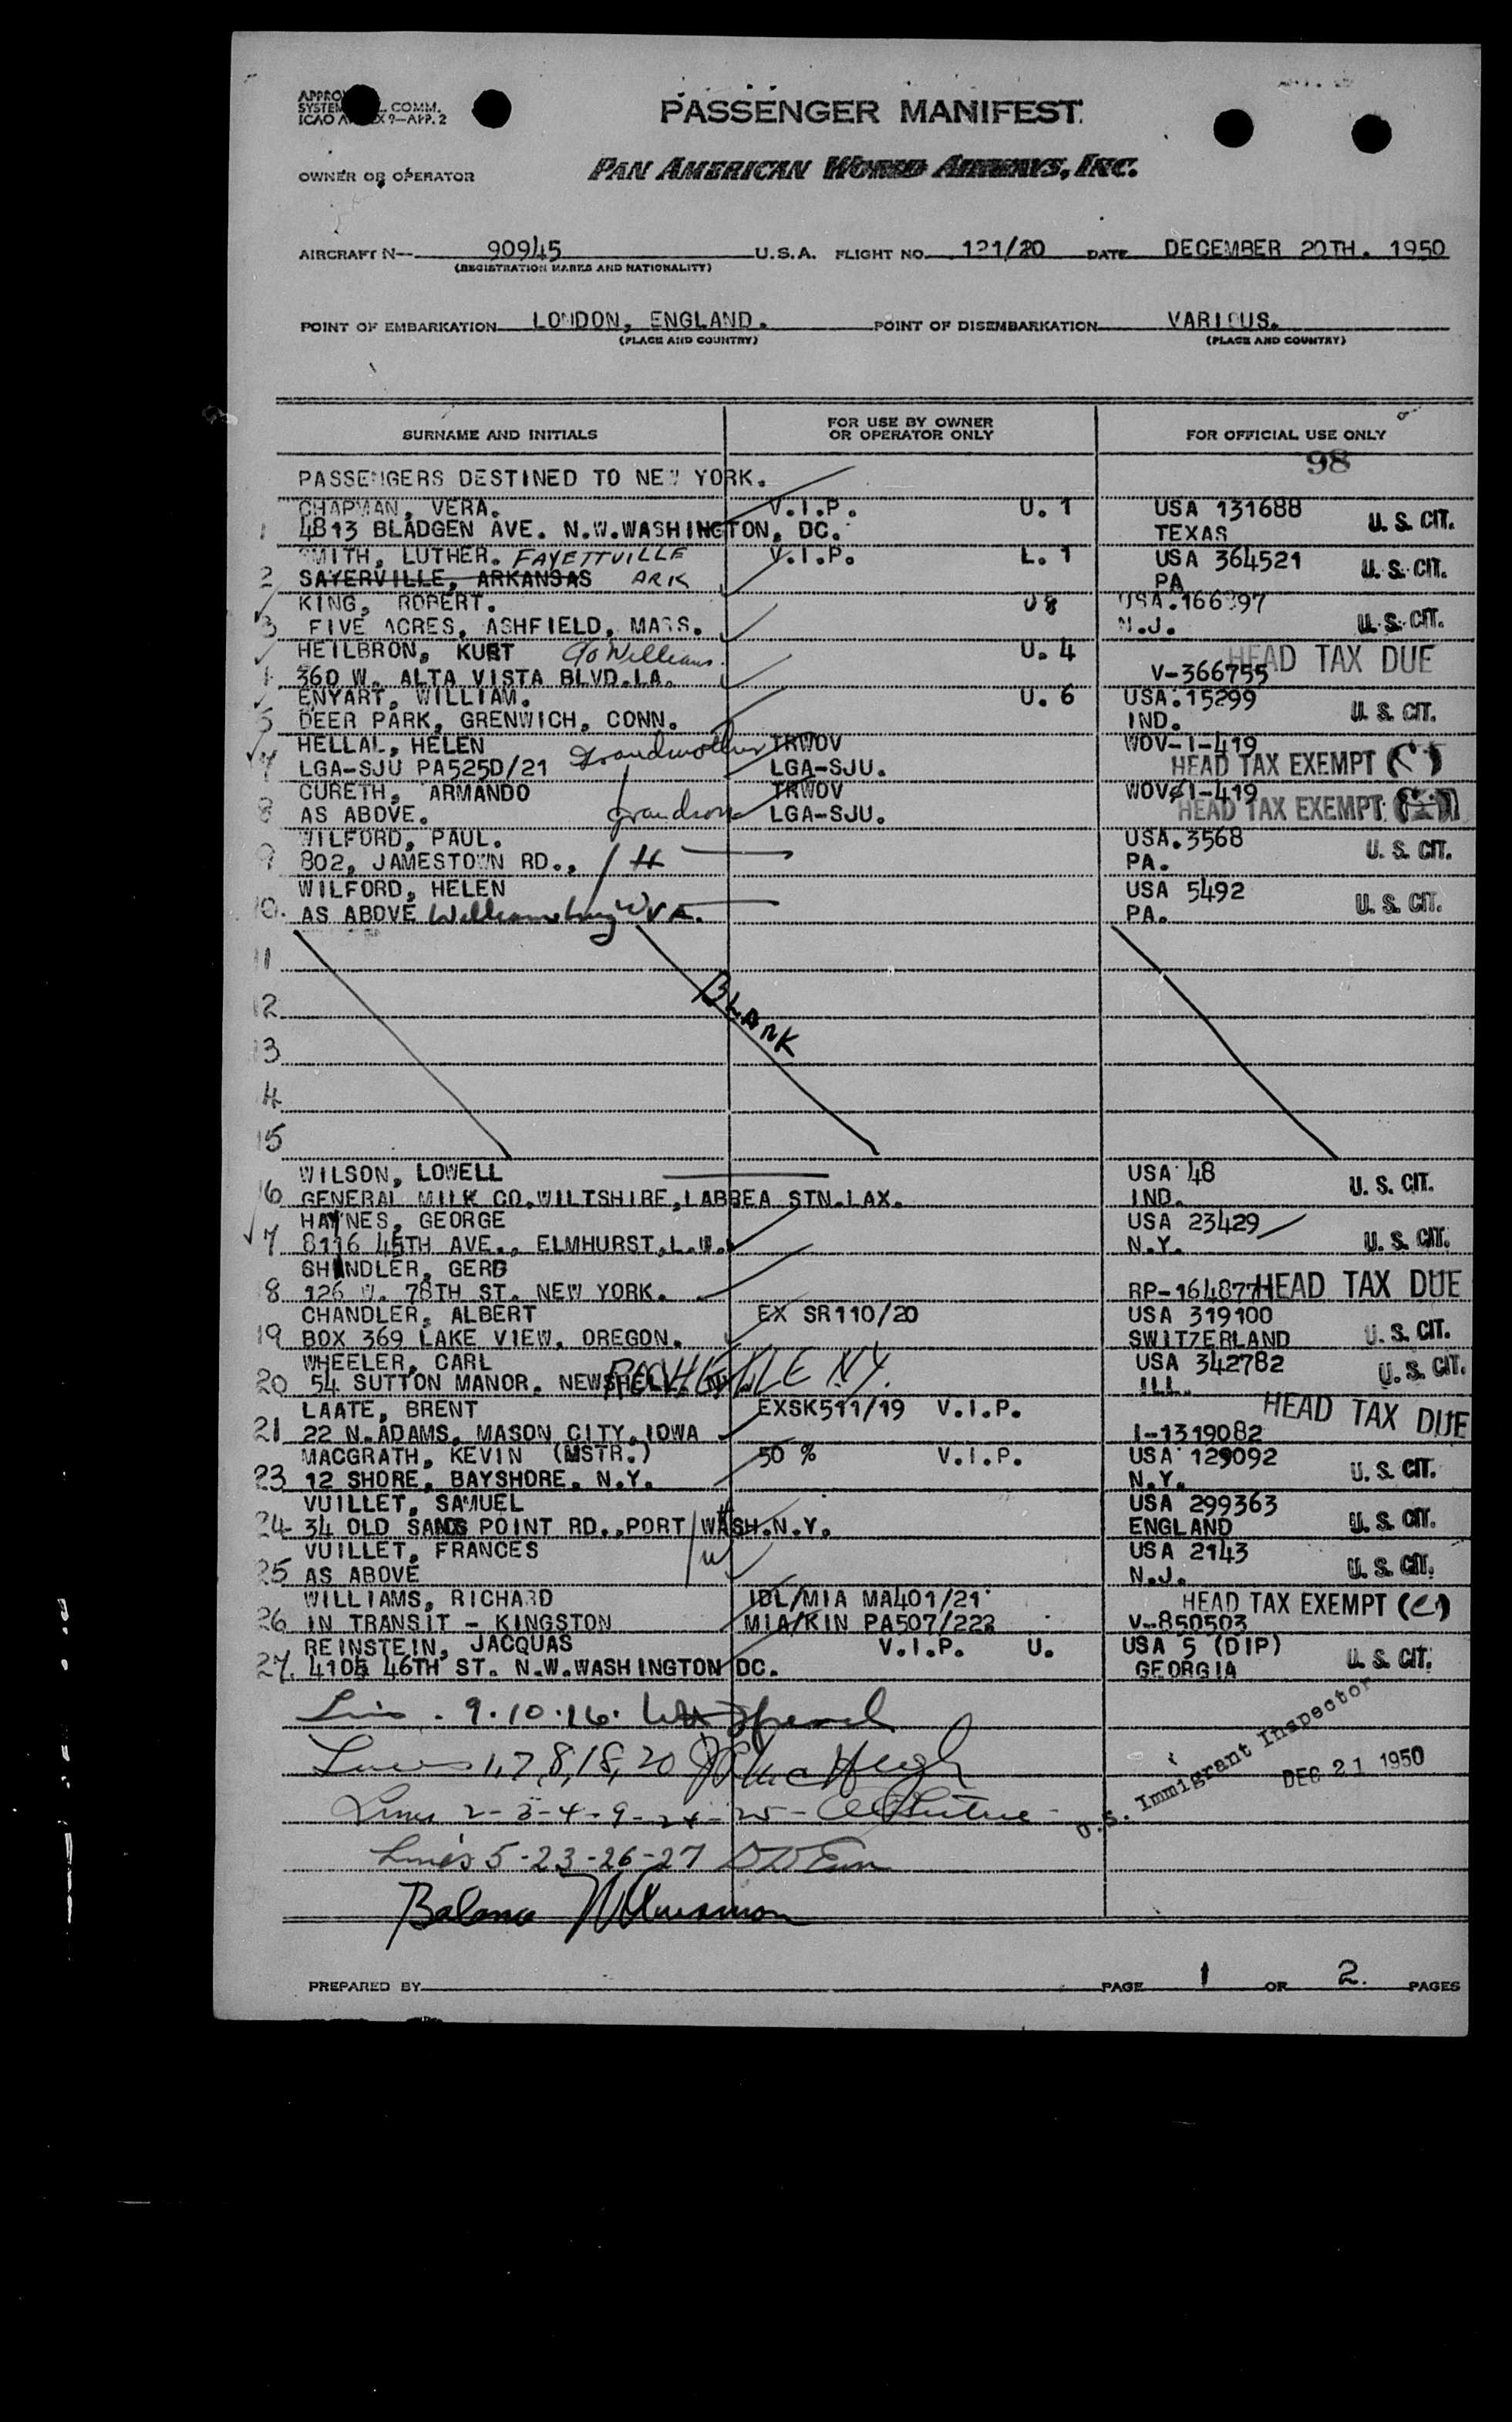 PASSENGER MANIFEST
PAN AMERICAN WORLD AIRWAYS, INC.
OWNER OR OPERATOR
AIRCRAFT N— 90945 U.S.A. FLIGHT NO. 121/20 DATE DECEMBER 20TH. 1950
(REGISTRATION MARKS AND NATIONALITY)
POINT OF EMBARKATION LONDON, ENGLAND. POINT OF DISEMBARKATION VARIOUS.
(PLACE AND COUNTRY) (PLACE AND COUNTRY)
SURNAME AND INITIALS FOR USE BY OWNER OR OPERATOR ONLY FOR OFFICIAL USE ONLY
98
PASSENGERS DESTINED TO NEW YORK.
CHAPMAN, VERA. V.I.P. U. 1 USA 131688
1 4813 BLADGEN AVE. N.W.WASHINGTON, DC. TEXAS U. S. CIT.
SMITH, LUTHER. FAYETTVILLE V.I.P. L. 1 USA 364521
2 SAYERVILLE, ARKANSAS ARK PA U. S. CIT.
KING, ROBERT. U 8 USA.166397
3 FIVE ACRES, ASHFIELD, MASS. N.J. U. S. CIT.
HEILBRON, KURT c/o Williams. U. 4 HEAD TAX DUE
4 360 W. ALTA VISTA BLVD.LA. V-366755
ENYART, WILLIAM. U. 6 USA.15299
5 DEER PARK, GRENWICH, CONN. IND. U. S. CIT.
HELLAL, HELEN grandmother TRWOV WOV-1-419
7 LGA-SJU PA525D/21 LGA-SJU. HEAD TAX EXEMPT
CURETH, ARMANDO TRWOV WOV 1-419
8 AS ABOVE. grandson LGA-SJU. HEAD TAX EXEMPT
WILFORD, PAUL. USA.3568
9 802, JAMESTOWN RD., H PA. U. S. CIT.
WILFORD, HELEN USA 5492
10. AS ABOVE Williamsburg W VA. PA. U. S. CIT.
11
12 BLANK
13
14
15
WILSON, LOWELL USA 48
16 GENERAL MILK CO.WILTSHIRE,LABREA STN.LAX. IND. U. S. CIT.
HAYNES, GEORGE USA 23429
17 8116 45TH AVE., ELMHURST,L.I. N.Y. U. S. CIT.
SHINDLER, GERD
18 126 W. 78TH ST. NEW YORK. RP-164877 HEAD TAX DUE
CHANDLER, ALBERT EX SR110/20 USA 319100
19 BOX 369 LAKE VIEW, OREGON. SWITZERLAND U. S. CIT.
WHEELER, CARL USA 342782
20 54 SUTTON MANOR, NEW ROCHELLE N.Y. ILL. U. S. CIT.
LAATE, BRENT EXSK511/19 V.I.P. HEAD TAX DUE
21 22 N.ADAMS, MASON CITY,IOWA I-1319082
MACGRATH, KEVIN (MSTR.) 50 % V.I.P. USA 129092
23 12 SHORE, BAYSHORE, N.Y. N.Y. U. S. CIT.
VUILLET, SAMUEL USA 299363
24 34 OLD SANDS POINT RD.,PORT WASH.N.Y. H ENGLAND U. S. CIT.
VUILLET, FRANCES W USA 2143
25 AS ABOVE N.J. U. S. CIT.
WILLIAMS, RICHARD IDL/MIA MA401/21 HEAD TAX EXEMPT
26 IN TRANSIT - KINGSTON MIA/KIN PA507/222 V-850503
REINSTEIN, JACQUAS V.I.P. U. USA 5 (DIP)
27. 4105 46TH ST. N.W.WASHINGTON DC. GEORGIA U. S. CIT.
9.10.16.
Lines 1,7,8,18,20
Lines 2-3-4-9-24-25-
Lines 5-23-26-27
Balance
U.S. Immigrant Inspector
DEC 21 1950
PREPARED BY PAGE 1 OF 2. PAGES